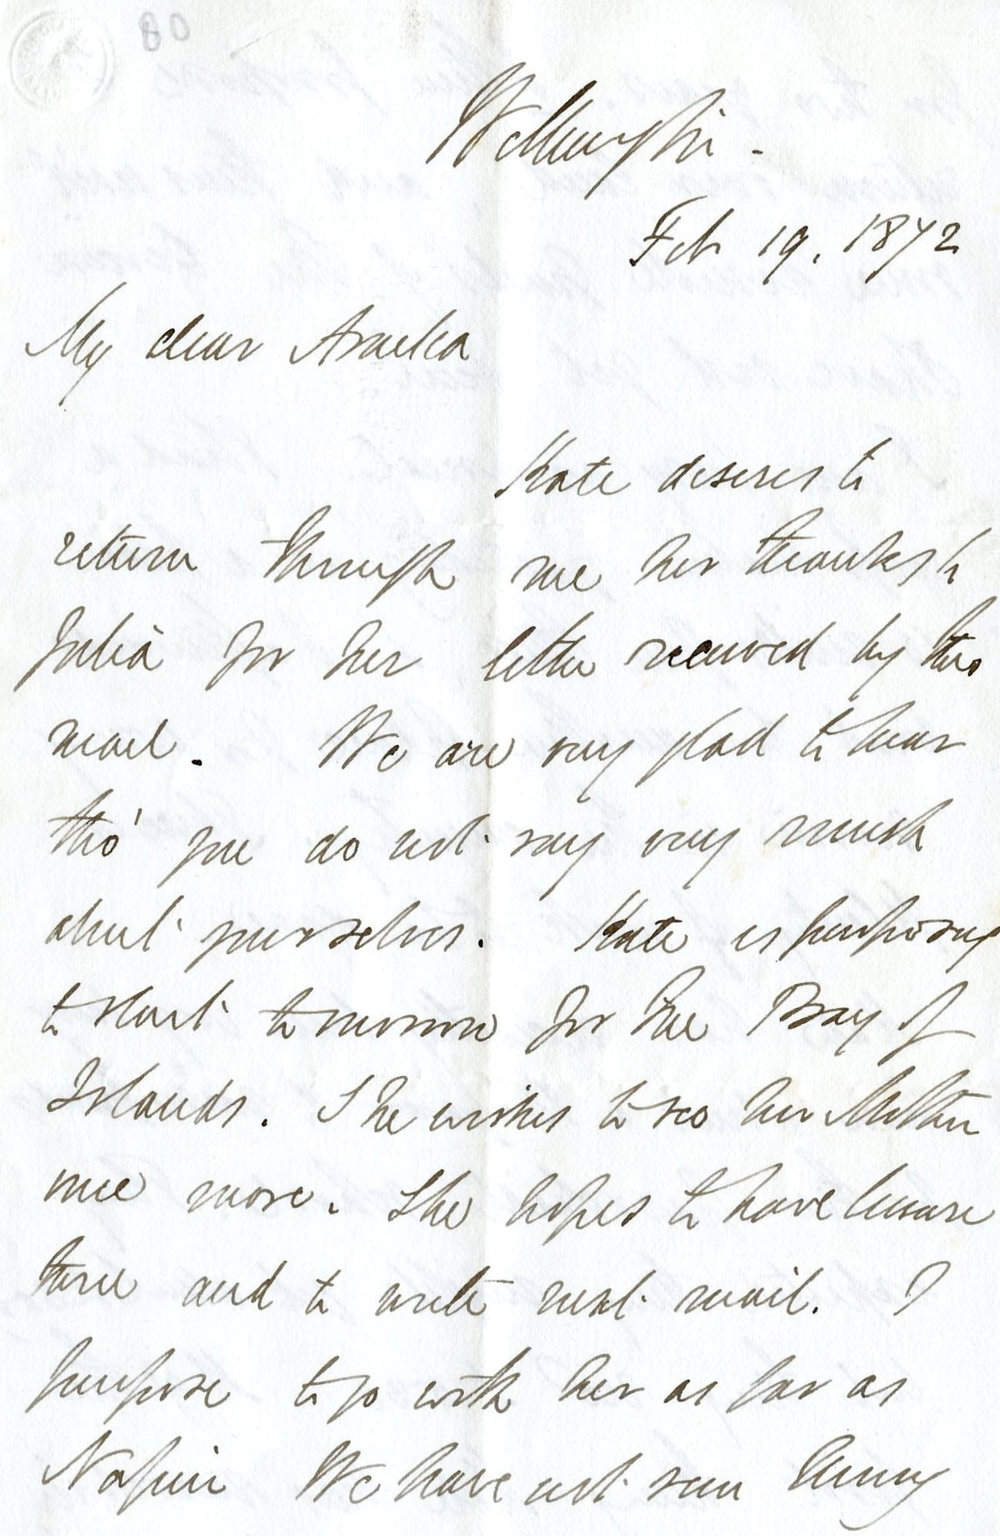 80
Wellington.
Feb 19. 1872
My dear
Kate desires to
return through me her thanks to
Julia for her letter received by this
mail. We are very glad to hear
tho' you do not say very much
about yourselves. Kate is purposing
to start tomorrow for the Bay of
Islands. She wishes to see her Mother
once more. She hopes to have leisure
there and to write next mail. I
purpose to go with her as far as
Napier We have not seen